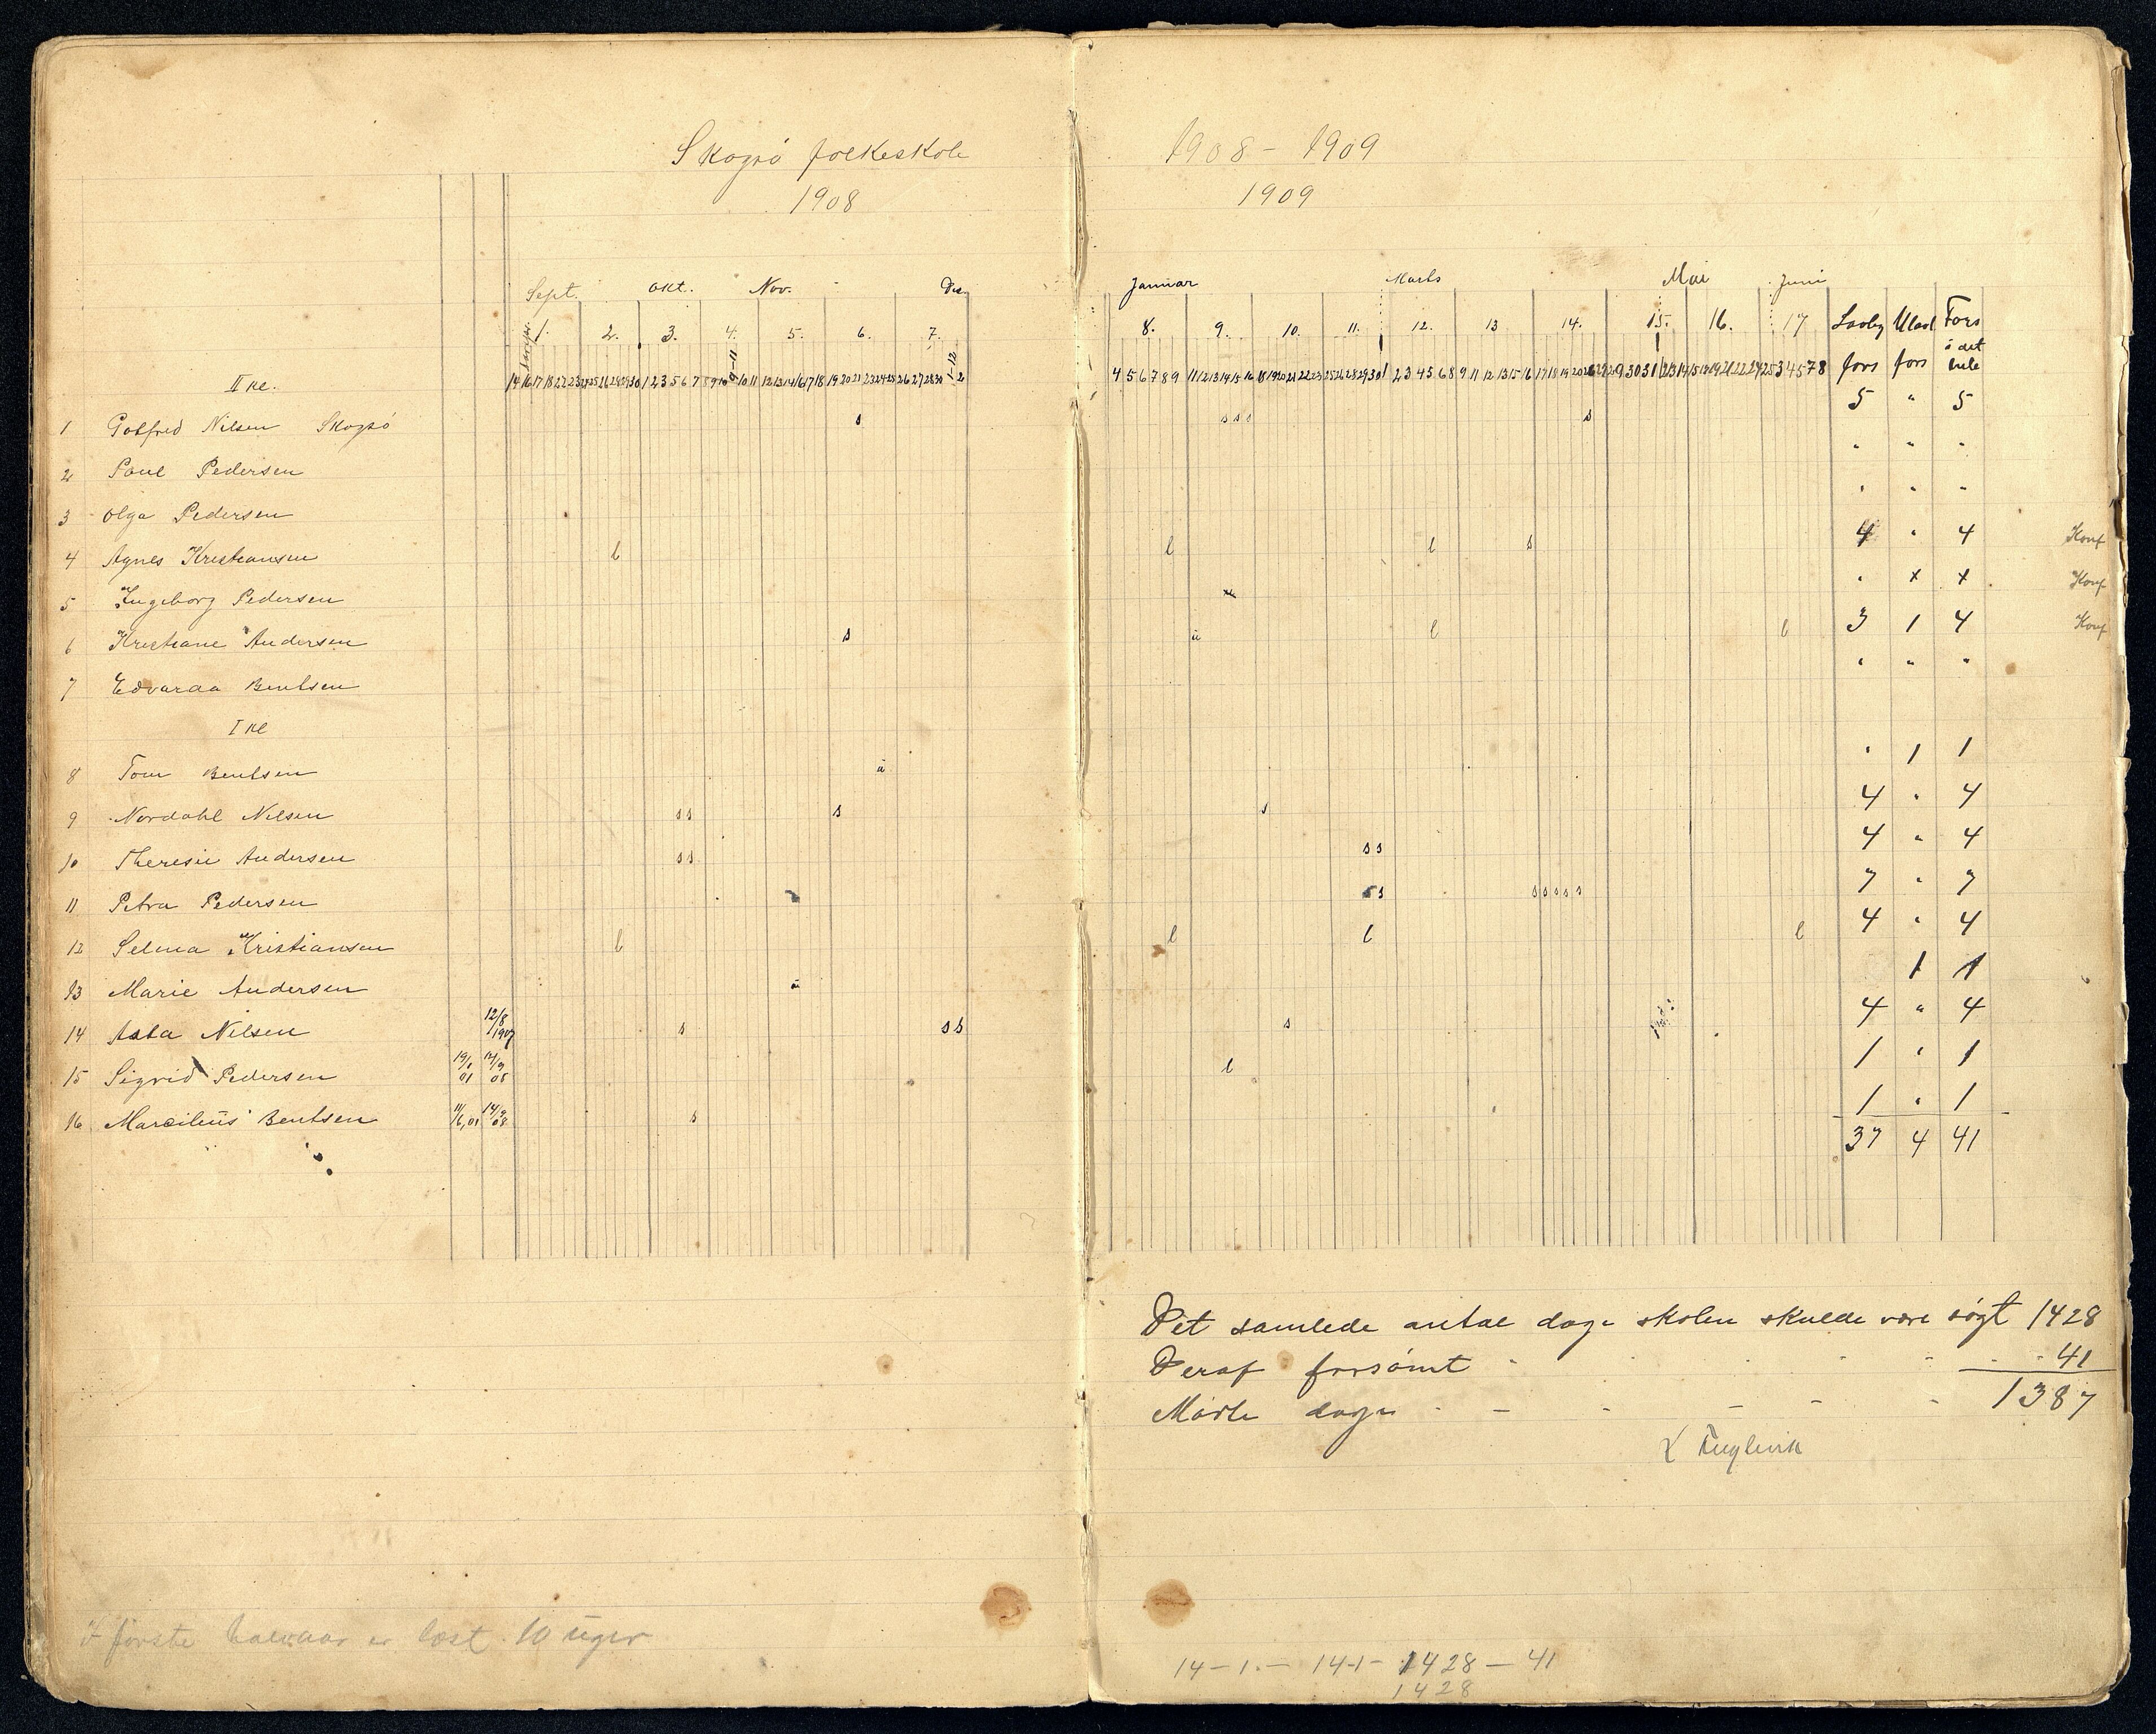 Skogsö folkeskole 1908 - 1909
1908 1909
Sept. Okt. Nov. Des. Januar Marts Mai Juni
1. 2. 3. 4. 5. 6. 7. 8. 9. 10. 11. 12. 13 14. 15. 16. 17 Lovlig Ulovl Fors
fors fors i det hele
II kl.
1 Gotfred Nilsen Skogsö s s s s s 5 " 5
2 Paul Pedersen " " "
3 Olga Pedersen " " "
4 Agnes Kristiansen l l l s 4 " 4 Konf
5 Ingeborg Pedersen " x x Konf
6 Kristiane Andersen s u l l 3 1 4 Konf
7 Edvarda Bentsen " " "
I kl
8 Tom Bentsen u " 1 1
9 Nordahl Nilsen s s s s 4 " 4
10 Theresie Andersen s s s s 4 " 4
11 Petra Pedersen s s s s s s s 7 " 7
12 Selma Kristiansen l l l l 4 " 4
13 Marie Andersen u 1 1
14 Asta Nilsen 12/8 1907 s s s s 4 " 4
15 Sigrid Pedersen l 1 " 1
16 Marcilius Bentsen 11/6,01 14/9 08 s 1 " 1
37 4 41
Det samlede antal dage skolen skulde være søgt 1428
Deraf forsömt - - - 41
Mødte dage - - - 1387
I förste halvaar er læst 10 uger
14 - 1 - 14-1- 1428 - 41
1428